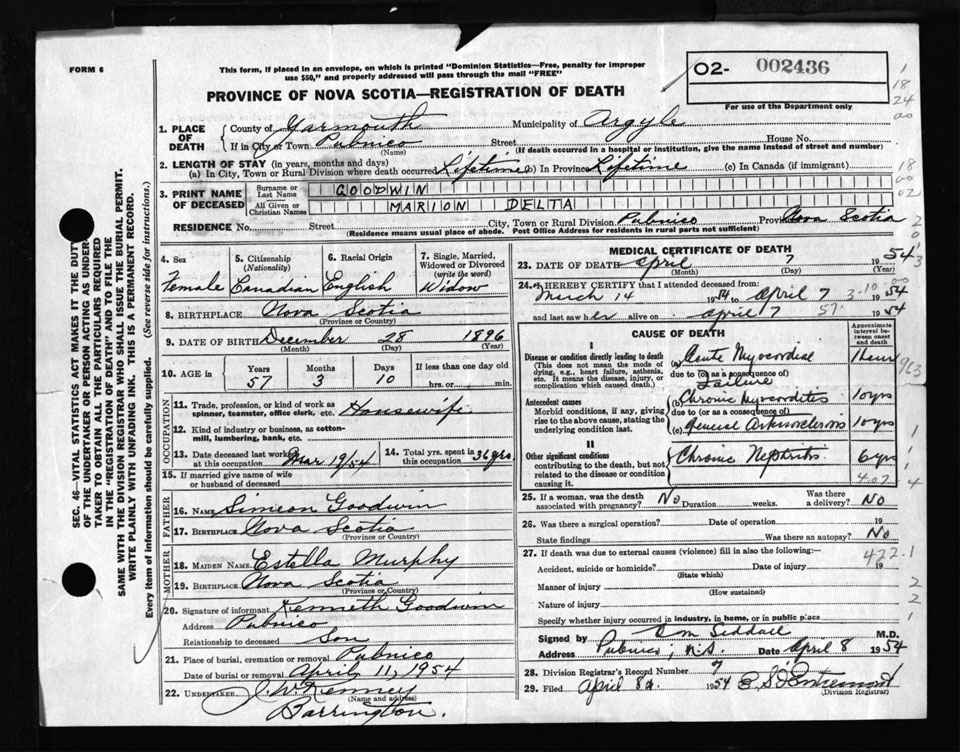 FORM 6
This form, if placed in an envelope, on which is printed "Dominion Statistics—Free, penalty for improper
use $50," and properly addressed will pass through the mail "FREE"
PROVINCE OF NOVA SCOTIA—REGISTRATION OF DEATH
O2- 002436
For use of the Department only
1. PLACE OF DEATH
County of Yarmouth Municipality of Argyle
If in City or Town Pubnico Street House No.
(Name) (If death occurred in a hospital or institution, give the name instead of street and number)
2. LENGTH OF STAY (in years, months and days)
(a) In City, Town or Rural Division where death occurred Lifetime (b) In Province Lifetime (c) In Canada (if immigrant)
3. PRINT NAME OF DECEASED
Surname or Last Name GOODWIN
All Given or Christian Names MARION DELTA
RESIDENCE No. Street City, Town or Rural Division Pubnico Province Nova Scotia
(Residence means usual place of abode. Post Office Address for residents in rural parts not sufficient)
4. Sex
Female
5. Citizenship
(Nationality)
Canadian
6. Racial Origin
English
7. Single, Married, Widowed or Divorced
(write the word)
Widow
8. BIRTHPLACE Nova Scotia
(Province or Country)
9. DATE OF BIRTH December 28 1896
(Month) (Day) (Year)
10. AGE in
Years Months Days If less than one day old
57 3 10 hrs. or min.
OCCUPATION
11. Trade, profession, or kind of work as spinner, teamster, office clerk, etc. Housewife
12. Kind of industry or business, as cotton-mill, lumbering, bank, etc.
13. Date deceased last worked at this occupation Mar 19/54
14. Total yrs. spent in this occupation 36 yrs.
15. If married give name of wife or husband of deceased
FATHER
16. NAME Simeon Goodwin
17. BIRTHPLACE Nova Scotia
(Province or Country)
MOTHER
18. MAIDEN NAME Estella Murphy
19. BIRTHPLACE Nova Scotia
(Province or Country)
20. Signature of informant Kenneth Goodwin
Address Pubnico
Relationship to deceased Son
21. Place of burial, cremation or removal Pubnico
Date of burial or removal April 11, 1954
22. UNDERTAKER
(Name and address)
Barrington.
MEDICAL CERTIFICATE OF DEATH
23. DATE OF DEATH April 7 1954
(Month) (Day) (Year)
24. I HEREBY CERTIFY that I attended deceased from:
March 14 1954 to April 7 1954
and last saw her alive on April 7 1954
CAUSE OF DEATH
Approximate interval between onset and death
I
Disease or condition directly leading to death
(This does not mean the mode of dying, e.g., heart failure, asthenia, etc. It means the disease, injury, or complication which caused death.)
(a) Acute Myocardial 1 hour
due to (or as a consequence of)
Failure
Antecedent causes
Morbid conditions, if any, giving rise to the above cause, stating the underlying condition last.
(b) Chronic Myocarditis 10 yrs
due to (or as a consequence of)
(c) General Arteriosclerosis 10 yrs
II
Other significant conditions
contributing to the death, but not related to the disease or condition causing it.
Chronic Nephritis. 6 yrs
25. If a woman, was the death associated with pregnancy? No Duration weeks. Was there a delivery? No
26. Was there a surgical operation? Date of operation 19
State findings Was there an autopsy? No
27. If death was due to external causes (violence) fill in also the following:—
422.1
Accident, suicide or homicide? Date of injury 19
(State which)
Manner of injury
(How sustained)
Nature of injury
Specify whether injury occurred in industry, in home, or in public place
Signed by M.D.
Address Pubnico, N.S. Date April 8 1954
28. Division Registrar's Record Number 7
29. Filed April 8th 1954
(Division Registrar)
SEC. 46—VITAL STATISTICS ACT MAKES IT THE DUTY
OF THE UNDERTAKER OR PERSON ACTING AS UNDER-
TAKER TO OBTAIN ALL THE PARTICULARS REQUIRED
IN THE "REGISTRATION OF DEATH" AND TO FILE THE
SAME WITH THE DIVISION REGISTRAR WHO SHALL ISSUE THE BURIAL PERMIT.
WRITE PLAINLY WITH UNFADING INK. THIS IS A PERMANENT RECORD.
Every item of information should be carefully supplied. (See reverse side for instructions.)